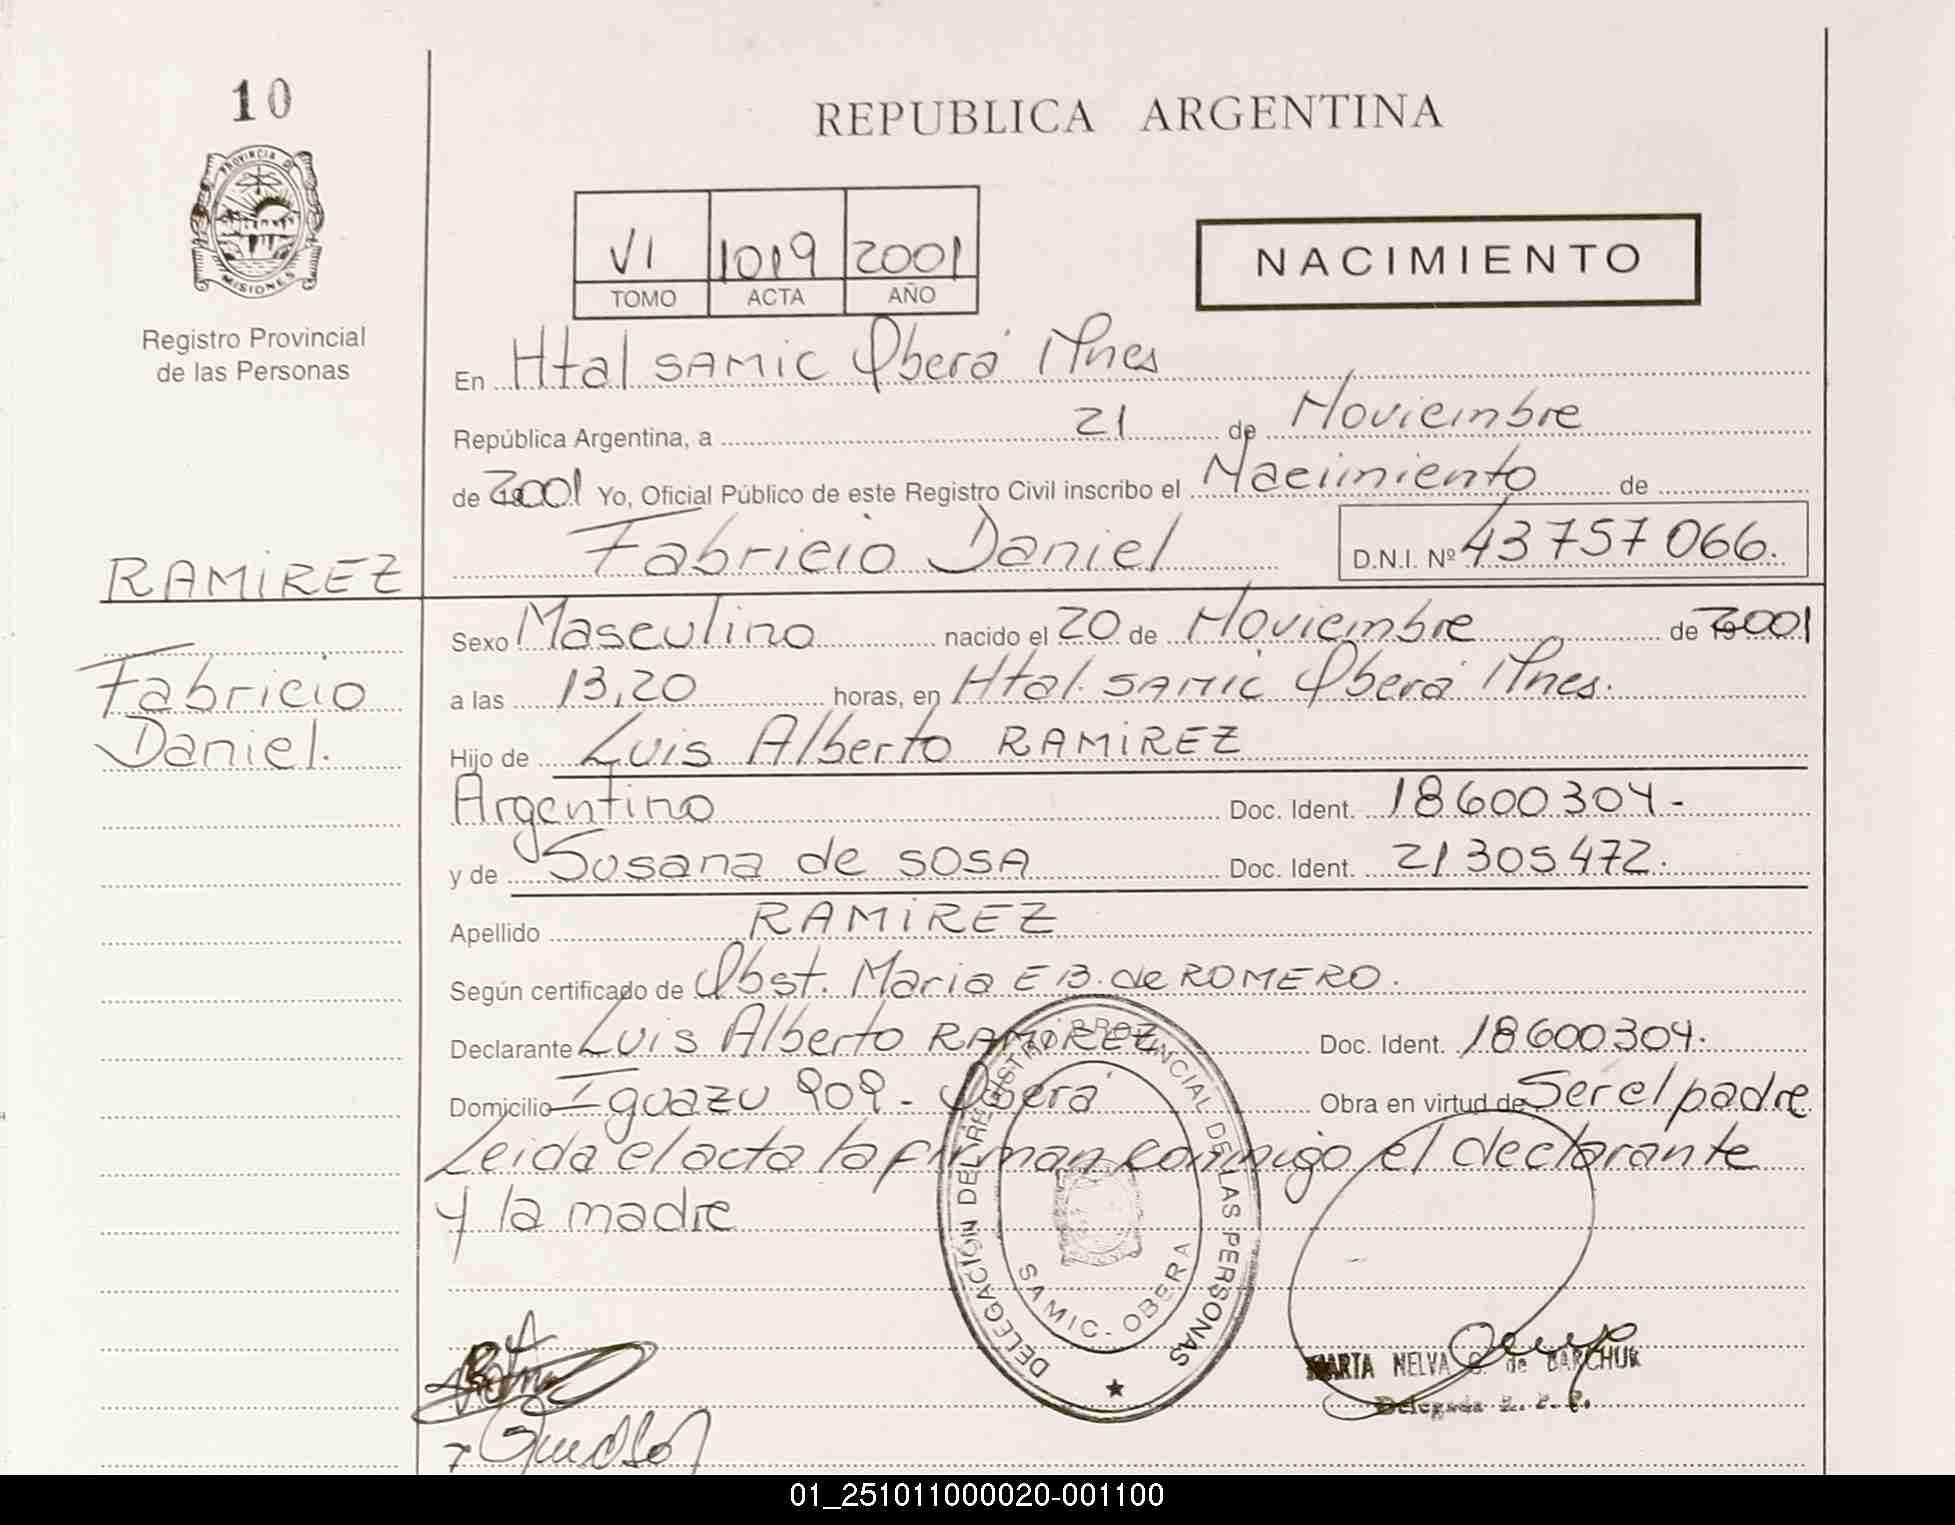 10
REPUBLICA ARGENTINA
PROVINCIA DE MISIONES
Registro Provincial
de las Personas
VI 1019 2001
TOMO ACTA AÑO
NACIMIENTO
En Htal SAMIC Oberá Mnes
República Argentina, a 21 de Noviembre
de 2001 Yo, Oficial Público de este Registro Civil inscribo el Nacimiento de
Fabricio Daniel D.N.I. Nº 43757066.
RAMIREZ
Fabricio
Daniel.
Sexo Masculino nacido el 20 de Noviembre de 2001
a las 13,20 horas, en Htal. SAMIC Oberá Mnes.
Hijo de Luis Alberto RAMIREZ
Argentino Doc. Ident. 18600304.-
y de Susana de SOSA Doc. Ident. 21305472.
Apellido RAMIREZ
Según certificado de Obst. Maria E B. de ROMERO.
Declarante Luis Alberto RAMIREZ Doc. Ident. 18600304.
Domicilio Iguazu 909 - Oberá Obra en virtud de Ser el padre
Leida el acta la firman conmigo el declarante
y la madre
DELEGACIÓN DEL REGISTRO PROVINCIAL DE LAS PERSONAS
SAMIC - OBERA
MARTA NELVA G. de BARCHUK
Delegada R. P. P.
01_251011000020-001100